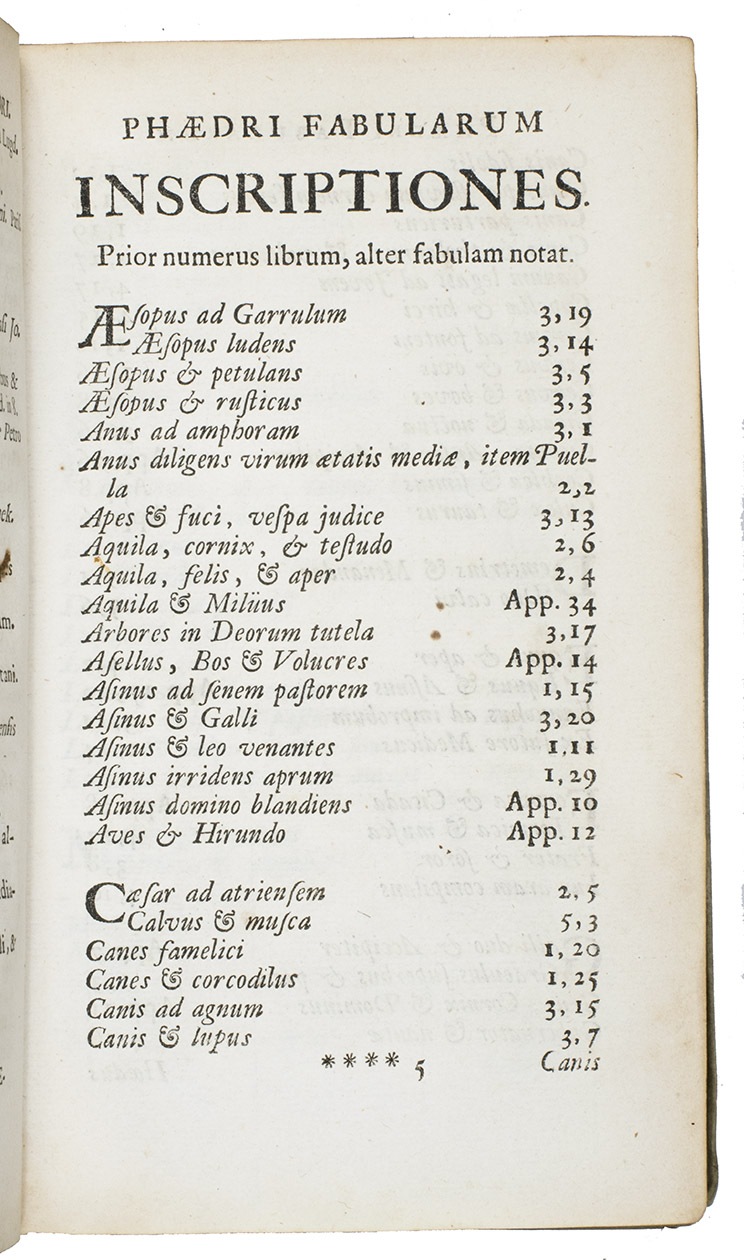 PHÆDRI FABULARUM
INSCRIPTIONES.
Prior numerus librum, alter fabulam notat.
Æſopus ad Garrulum 3, 19
Æſopus ludens 3, 14
Æſopus & petulans 3, 5
Æſopus & ruſticus 3, 3
Anus ad amphoram 3, 1
Anus diligens virum ætatis mediæ, item Puel-
la 2,2
Apes & fuci, veſpa judice 3,13
Aquila, cornix, & teſtudo 2, 6
Aquila, felis, & aper 2, 4
Aquila & Milüus App. 34
Arbores in Deorum tutela 3,17
Aſellus, Bos & Volucres App. 14
Aſinus ad ſenem paſtorem 1, 15
Aſinus & Galli 3, 20
Aſinus & leo venantes 1,11
Aſinus irridens aprum 1, 29
Aſinus domino blandiens App. 10
Aves & Hirundo App. 12
Cæſar ad atrienſem 2, 5
Calvus & muſca 5, 3
Canes famelici 1, 20
Canes & corcodilus 1, 25
Canis ad agnum 3, 15
Canis & lupus 3, 7
**** 5 Canis